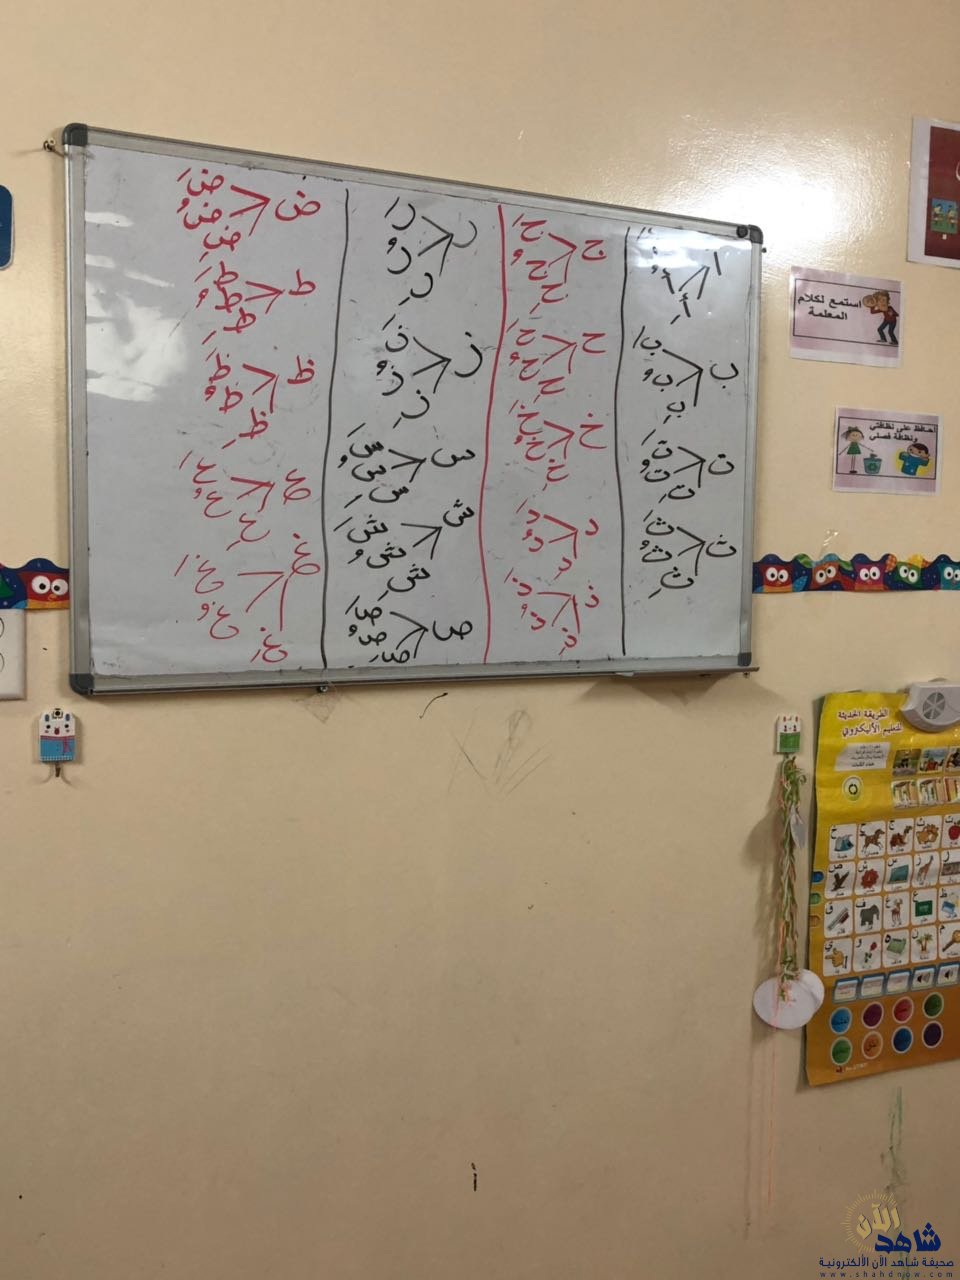 أ
أَ
أُ
أِ
ب
بَ
بُ
بِ
ت
تَ
تُ
تِ
ث
ثَ
ثُ
ثِ
ج
جَ
جُ
جِ
ح
حَ
حُ
حِ
خ
خَ
خُ
خِ
د
دَ
دُ
دِ
ذ
ذَ
ذُ
ذِ
ر
رَ
رُ
رِ
ز
زَ
زُ
زِ
س
سَ
سُ
سِ
ش
شَ
شُ
شِ
ص
صَ
صُ
صِ
ض
ضَ
ضُ
ضِ
ط
طَ
طُ
طِ
ظ
ظَ
ظُ
ظِ
ع
عَ
عُ
عِ
غ
غَ
غُ
غِ
استمع لكلام
المعلمة
احافظ على نظافتي
ونظافة فصلي
الطريقة الحديثة
للتعليم الأليكتروني
1-1
خ ح ج ث ت
ص ش س ز ر
ق ف غ ع ظ
ي و ه ن م
أ
شاهد الآن
صحيفة شاهد الآن الألكترونية
www.shahdnow.com